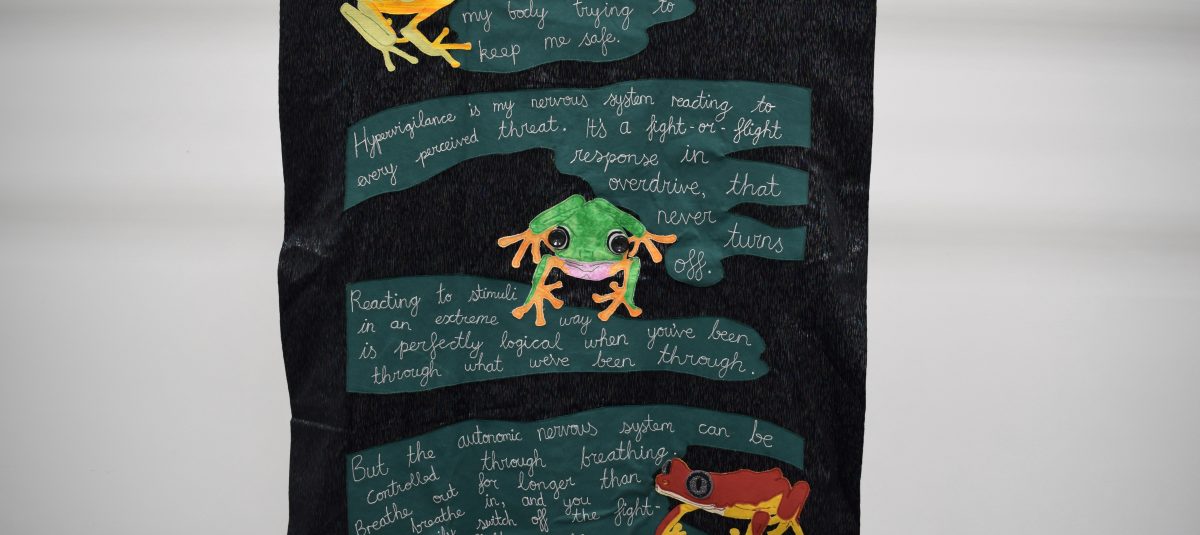 my body trying to
keep me safe.
Hypervigilance is my nervous system reacting to
every perceived threat. It's a fight-or-flight
response in
overdrive, that
never
turns
off.
Reacting to stimuli
in an extreme way
is perfectly logical when you've been
through what we've been through.
But the autonomic nervous system can be
controlled through breathing.
Breathe out for longer than
breathe in, and you
switch off the fight-